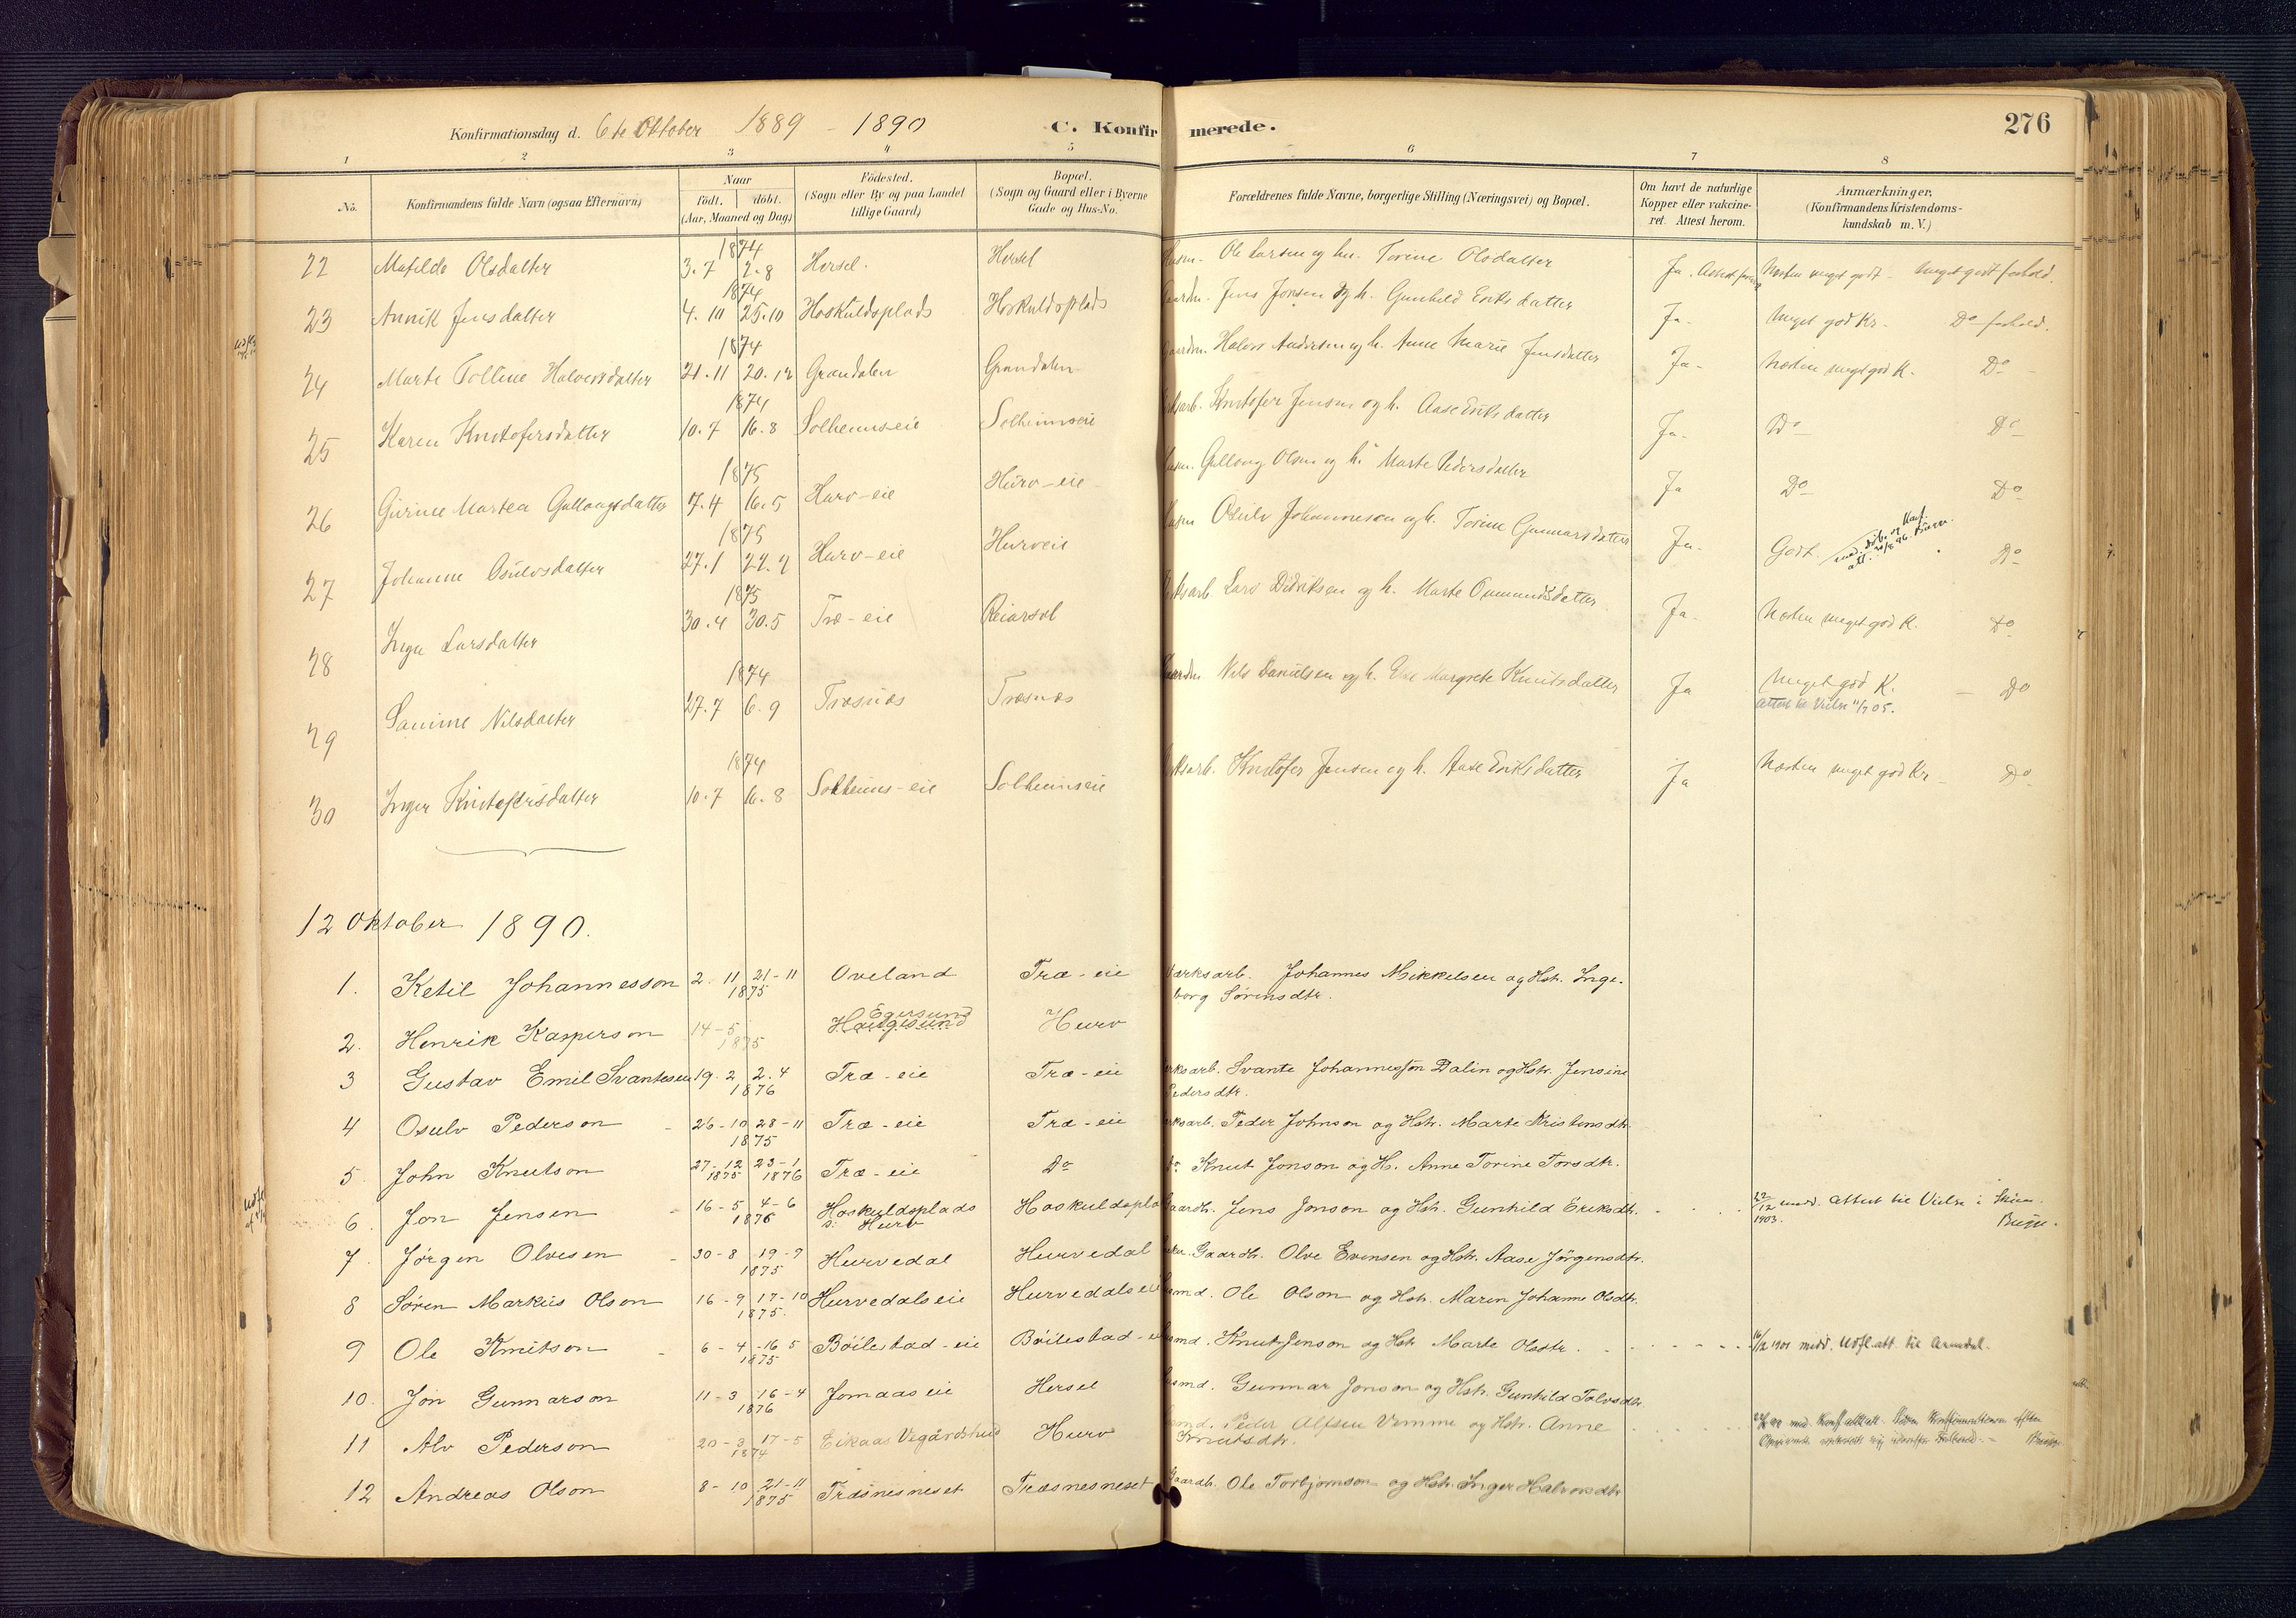 Konfirmationsdag d. 6te Oktober 1889 - 1890 C. Konfirmerede. 276
1 2 3 4 5 6 7 8
No. Konfirmandens fulde Navn (ogsaa Efternavn) Naar födt. döbt. (Aar, Maaned og Dag) Födested. (Sogn eller By og paa Landet tillige Gaard) Bopæl. (Sogn og Gaard eller i Byerne Gade og Hus-No. Forældrenes fulde Navne, borgerlige Stilling (Næringsvei) og Bopæl. Om havt de naturlige Kopper eller vakcineret. Attest herom. Anmærkninger. (Konfirmandens Kristendomskundskab m. V.)
1874
22 Matilde Olsdatter 3.7 2.8 Hersel. Hersel Ole Larsen og hu. Torine Olsdatter Ja. Næsten meget godt - Meget godt forhold.
1874
23 Annik Jensdatter 4.10 25.10 Hoskuldsplads Hoskuldsplads Jens Jonsen og h. Gunhild Eriksdatter Ja. Meget god Kr. Do forhold.
1874
24 Marte Tolline Halvorsdatter 21.11 20.12 Grandalen Grandalen Halvor Andersen og h. Anne Marie Jensdatter Ja - Næsten meget god K. Do
1874
25 Karen Kristofersdatter 10.7 16.8 Solheimseie Solheimseie Kristofer Jensen og h. Aase Eriksdatter Ja. Do Do
1875
26 Gurine Martea Gulloagsdatter 7.4 16.5 Hurv-eie Hurv-eie Gulloug Olsen og h. Marte Pedersdatter Ja Do Do
1875
27 Johanne Osulvsdatter 27.1 Hurv-eie Hurveie Osulv Johannesen og h. Torine Gunnarsdatter Ja. Godt. Do
1875
28 Inga Larsdatter 30.4 30.5 Træ-eie Reiarsel Lars Didriksen og h. Marte Ommundsdatter Ja. Næsten meget god K. Do
1874
29 Nilsdatter 27.7 6.9 Træsnæs Træsnæs Nils Danielsen og h. Margrete Knutsdatter Ja Meget god K. - Do
Attest til Vielse 11/7 05.
1874
30 Inger Kristofersdatter 10.7 16.8 Solheims-eie Solheimseie Kristofer Jensen og h. Aase Eriksdatter Ja Næsten meget god Kr - Do
12 Oktober 1890.
1. Ketil Johannesson 2-11 21-11 Oveland Træ-eie Værksarb. Johannes Mikkelsen og Hstr. Inge-
1875 borg Sörensdtr.
2. Henrik Kasperson 14-5 Haugesund Egersund Hurv
1875
3 Gustav Emil Svantesen 19.2 2.4 Træ-eie Træ-eie Svante Johannesson Dalin og Hstr. Jensine
1876 Pedersdtr.
4 Osulv Pederson 26-10 28-11 Træ-eie Træ-eie Peder Johnson og Hstr. Marte Kristensdtr.
1875
5 John Knutson 27-12 23-1 Træ-eie Do Do Knut Jonson og H. Anne Torine Torsdtr.
1875 1876
6. Jon Jensen 16-5 4-6 Hoskuldsplads Hoskuldspla Gaardbr. Jens Jonson og Hstr. Gunhild Eriksdtr. 22/12 1903. medd. Attest til Vielse i
1876 s: Hurv
7. Jörgen Olvesen 30-8 19-9 Hurvedal Hurvedal Gaardbr. Olve Evensen og Hstr. Aase Jörgensdtr.
1875
8 Sören Markus Olson 16-9 17-10 Hurvedalseie Hurvedalseie Ole Olson og Hstr. Maren Johanne Olsdtr.
1875.
9 Ole Knutson 6-4 -16 5 Böilestad-eie Böilestad-e Knut Jenson og Hstr Marte Olsdtr. 16/2 1901 medd. Udfl.att. til Arendal.
1875
10. Jon Gunnarson 11-3 16-4 Jomaaseie Hersel Gunnar Jonson og Hstr. Gunhild Tolvsdtr
1876
11 Alv Pederson 20-3 17-5 Eikaas Vegårdsheid Hurv Peder Alfsen Vemme og Hstr. Anne
1874 Knutsdtr.
12 Andreas Olson 8-10 21-11 Træsnesneset Træsnesneset Gaardb. Ole Torbjörnson og Hstr. Inger Halvorsdtr
1875